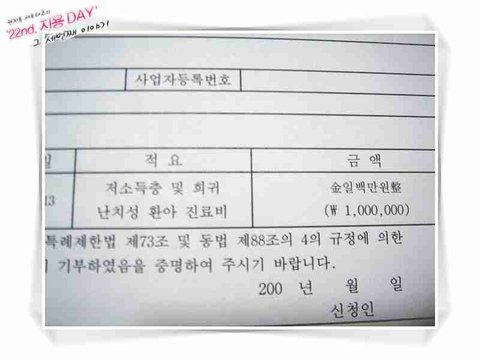 '22nd. 지용 DAY'
그 세번째 이야기
사업자등록번호
일 적 요 금 액
13 저소득층 및 희귀 金일백만원整
난치성 환아 진료비 (₩ 1,000,000)
특례제한법 제73조 및 동법 제88조의 4의 규정에 의한
기부하였음을 증명하여 주시기 바랍니다.
200 년 월 일
신청인